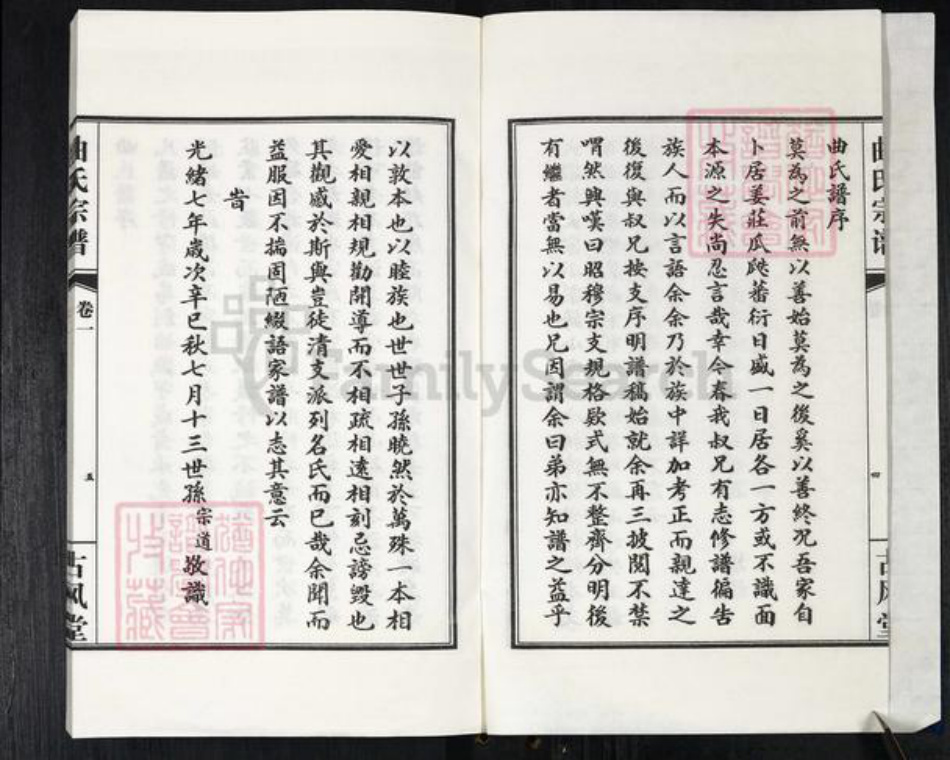 曲氏宗譜
四
古風堂
曲氏譜序
莫為之前無以善始莫為之後奚以善終况吾家自
卜居姜莊瓜瓞蕃衍日盛一日居各一方或不識面
本源之失尚忍言哉幸今春我叔兄有志修譜徧告
族人而以言語余余乃於族中詳加考正而親達之
後復與叔兄按支序明譜稿始就余再三披閱不禁
喟然興嘆曰昭穆宗支規格欵式無不整齊分明後
有繼者當無以易也兄因謂余曰弟亦知譜之益乎
以敦本也以睦族也世世子孫曉然於萬殊一本相
愛相親相規勸開導而不相疏相遠相刻忌謗毀也
其觀感於斯與豈徒清支派列名氏而已哉余聞而
益服因不揣固陋綴語家譜以志其意云
旹
光緒七年歲次辛巳秋七月十三世孫宗道敬識
曲氏宗譜
卷一
五
古風堂
FamilySearch